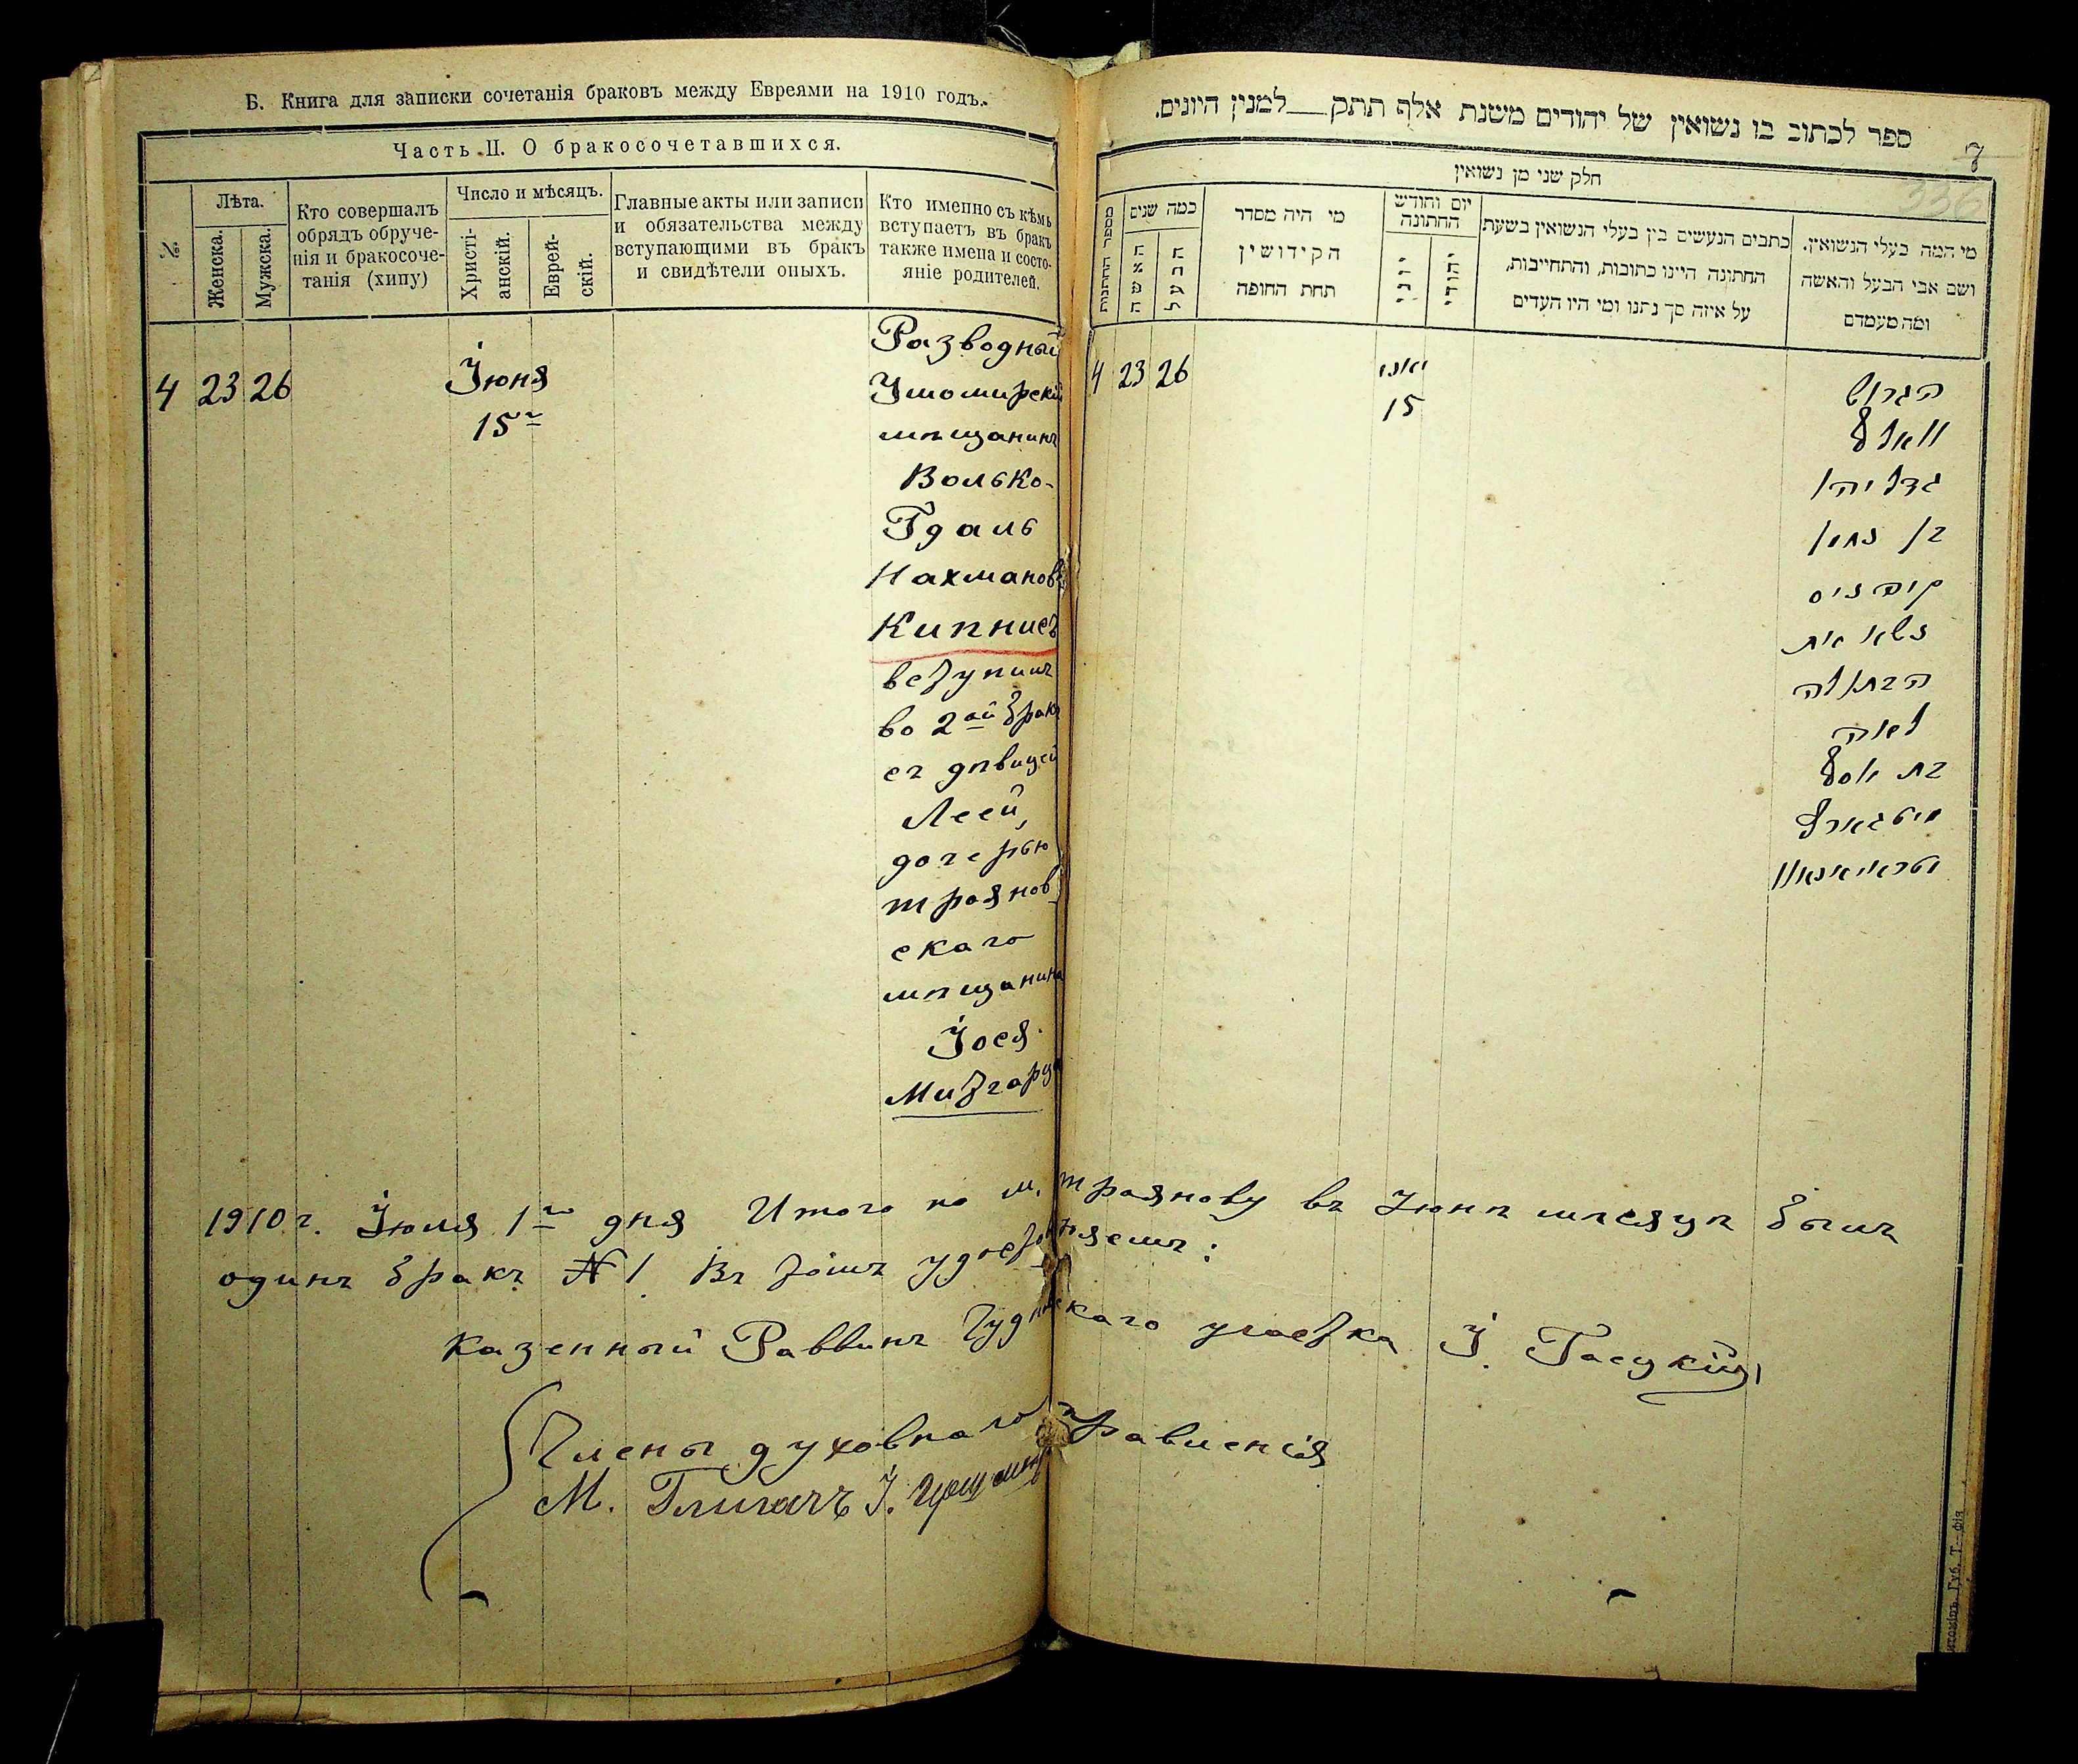 Б. Книга для записки сочетанія браковъ между Евреями на 1910 годъ.
Часть II. О бракосочетавшихся.
№.
Лѣта.
Женска.
Мужска.
Кто совершалъ
обрядъ обруче-
нія и бракосоче-
танія (хипу)
Число и мѣсяцъ.
Христі-
анскій.
Еврей-
скій.
Главные акты или записи
и обязательства между
вступающими въ бракъ
и свидѣтели оныхъ.
Кто именно съ кѣмъ
вступаетъ въ бракъ
также имена и состо-
яніе родителей.
4 23 26
Іюня
15го
Разводный
Житомирскій
мѣщанинъ
Волько-
Гдаль
Нахмановъ
Кипнисъ
вступилъ
во 2ой бракъ
съ дѣвицей
Леей,
дочерью
трояновскаго
мѣщанина
Іося
ספר לכתוב בו נשואין של יהודים משנת אלף תתק___למנין היונים.
7
336
חלק שני מן נשואין
מספר החתנות
כמה שנים
האשה
הבעל
מי היה מסדר
הקידושין
תחת החופה
יום וחודש
החתונה
יוני
יהודי
כתבים הנעשים בין בעלי הנשואין בשעת
החתונה היינו כתובות, והתחייבות,
על איזה סך נתנו ומי היו העדים
מי המה בעלי הנשואין.
ושם אבי הבעל והאשה
ומה מעמדם
4 23 26
יוני
15
הגרוש
וואלף
גדליהו
בן נחמן
קיפניס
נשא את
הבתולה
לאה
בת יוסף
1910 г. Іюля 1го дня Итого по м. Трояновъ въ Іюнѣ мѣсяцѣ былъ
одинъ бракъ № 1. Въ томъ удостовѣряемъ:
Казенный Раввинъ Чудновскаго участка І.
Члены духовнаго правленія
М.